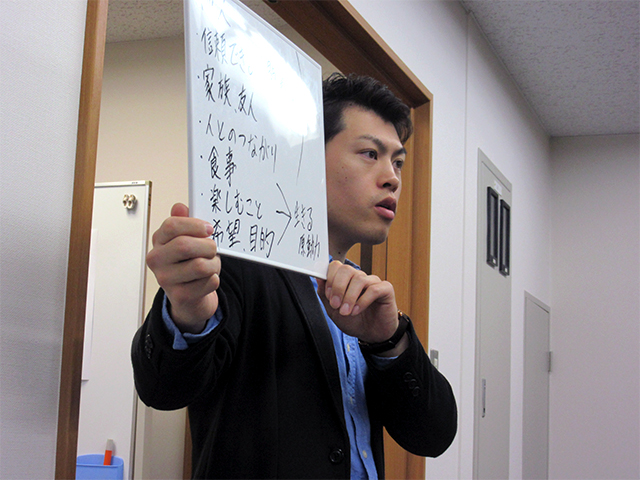 ・信頼でき
・家族 友人
・人とのつながり
・食事
・楽しむこと
・希望 目的
生きる
原動力